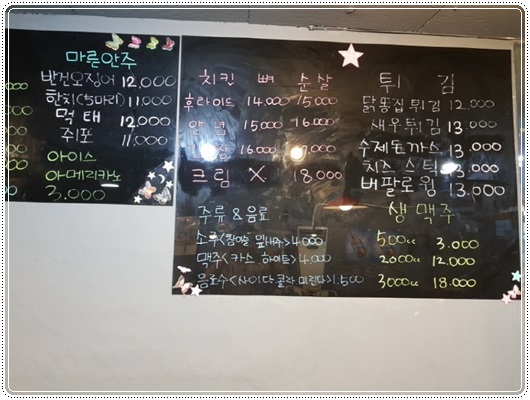 마른안주
반건오징어 12,000
한치(5마리) 11,000
먹태 12,000
쥐포 11,000
아이스
아메리카노
3.000
치킨 뼈 순살
후라이드 14.000 15,000
양념 15000 16.000
16.000 17,000
크림 X 18.000
주류 & 음료
소주<참이슬 잎새주>4.000
맥주<카스 하이트>4,000
음료수<사이다 콜라 미린다>1.500
튀 김
닭똥집 튀김 12.000
새우튀김 13.000
수제돈까스 13.000
치즈 스틱 13.000
버팔로윙 13.000
생 맥주
500cc 3.000
2000cc 12.000
3000cc 18.000